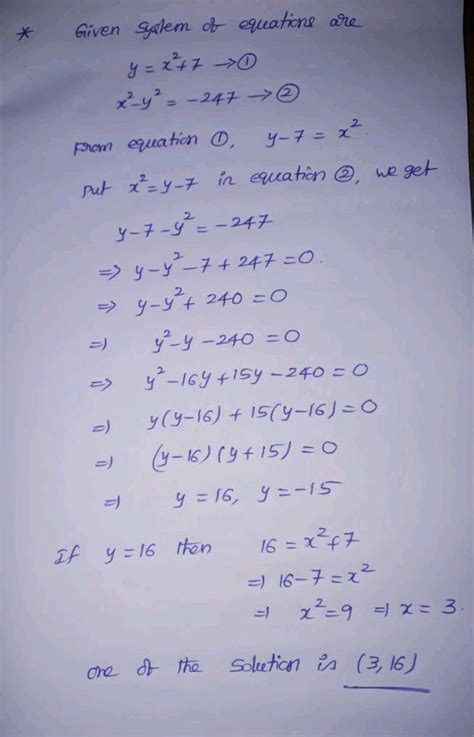 * Given system of equations are
y = x²+7 → ①
x²-y² = -247 → ②
From equation ①, y-7 = x²
Put x²=y-7 in equation ②, we get
y-7-y² = -247
⇒ y-y²-7+247=0.
⇒ y-y²+240=0
⇒ y²-y-240=0
⇒ y²-16y+15y-240=0
⇒ y(y-16)+15(y-16)=0
⇒ (y-16)(y+15)=0
⇒ y=16, y=-15
If y=16 then 16=x²+7
⇒ 16-7=x²
⇒ x²=9 ⇒ x=3.
one of the solution is (3,16)